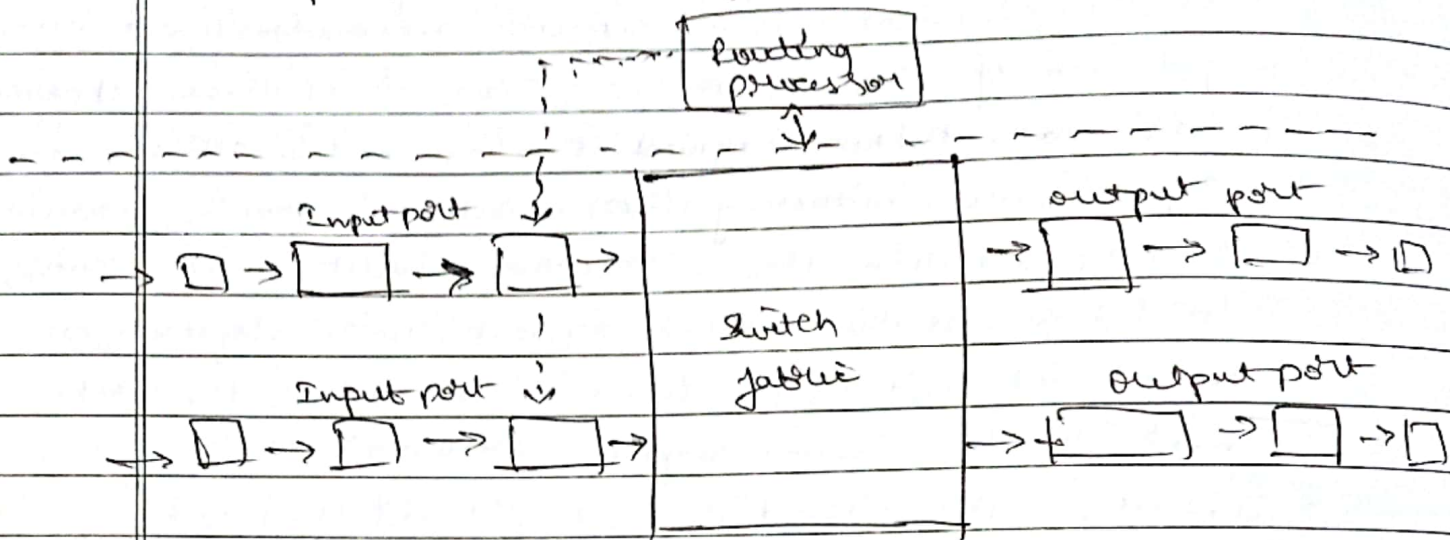 Routing
processor
Input port
output port
Switch
fabric
Input port
output port